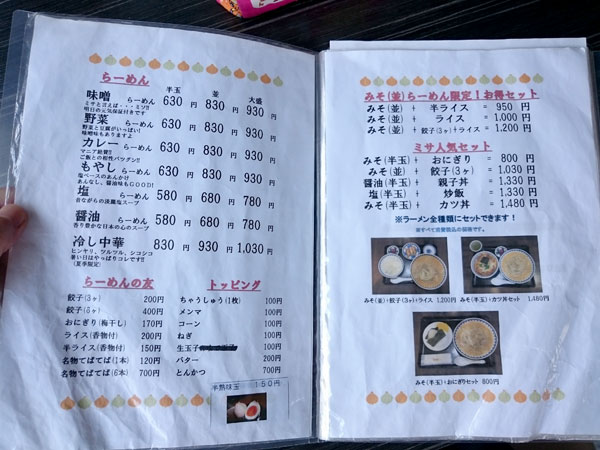 らーめん
半玉 並 大盛
味噌 らーめん 630円 830円 930円
ミサと言えば・・・ミソ!!
明日の元気保証付きです
野菜 らーめん 630円 830円 930円
野菜と豆腐がいっぱい!
味噌味もありますよ
カレー らーめん 630円 830円 930円
マニア絶賛!!
ご飯との相性バツグン!!
もやし らーめん 630円 830円 930円
塩ベースのあんかけ
あんなし、醤油味もGOOD!
塩 らーめん 580円 680円 780円
昔ながらの淡麗塩スープ
醤油 らーめん 580円 680円 780円
香り豊かな日本の心のスープ
冷し中華 830円 930円 1,030円
ヒンヤリ、ツルツル、シコシコ
暑い日はやっぱりコレです!!
(夏季限定)
らーめんの友
餃子(3ヶ) 200円
餃子(6ヶ) 400円
おにぎり(梅干し) 170円
ライス(香物付) 200円
半ライス(香物付) 150円
名物てばてば(1本) 120円
名物てばてば(6本) 700円
トッピング
ちゃうしゅう(1枚) 100円
メンマ 100円
コーン 100円
ねぎ 100円
生玉子 100円
バター 200円
とんかつ 700円
半熟味玉 150円
みそ(並)らーめん限定!お得セット
みそ(並) + 半ライス = 950円
みそ(並) + ライス = 1,000円
みそ(並) + 餃子(3ヶ)+ライス = 1,200円
ミサ人気セット
みそ(半玉) + おにぎり = 800円
みそ(並) + 餃子(3ヶ) = 1,030円
醤油(半玉) + 親子丼 = 1,330円
塩(半玉) + 炒飯 = 1,330円
みそ(半玉) + カツ丼 = 1,480円
※ラーメン全種類にセットできます!
みそ(並)+餃子(3ヶ)+ライス 1,200円
みそ(半玉)+カツ丼セット 1,480円
みそ(半玉)+おにぎりセット 800円